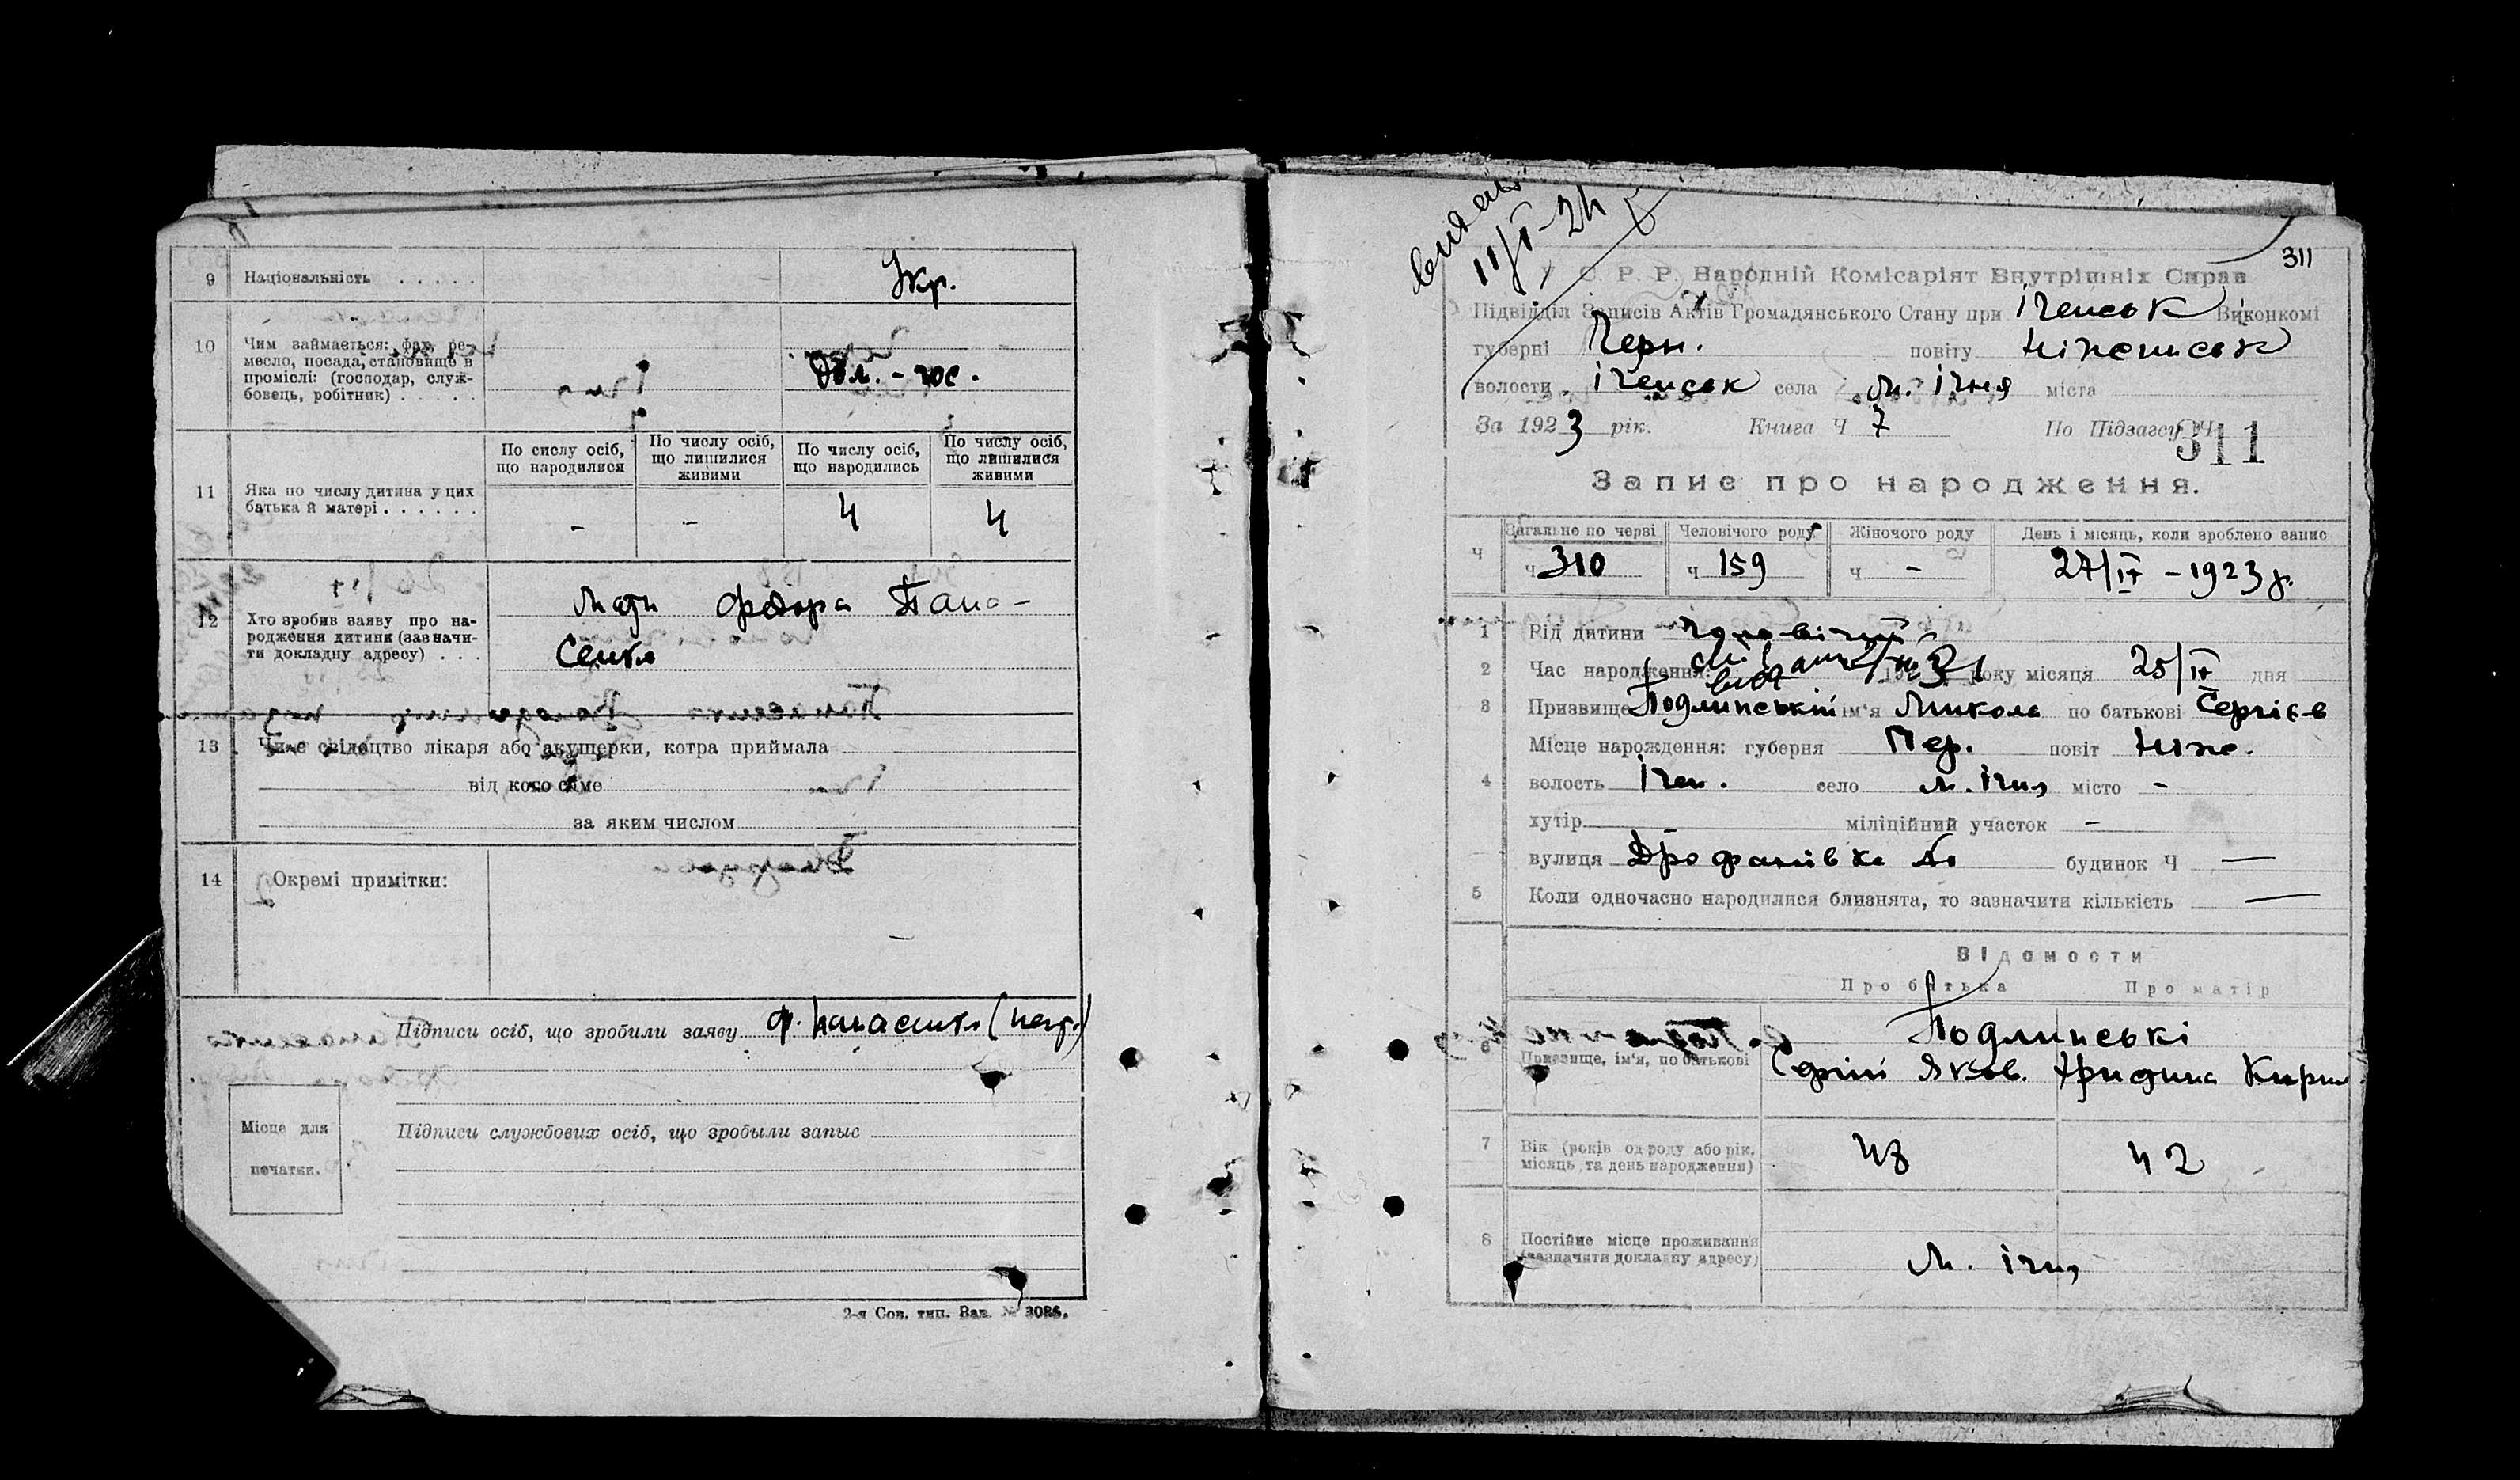 9 Національність . . . . . Укр.
10 Чим займається: фах, ре-
месло, посада, становище в
проміслі: (господар, служ-
бовець, робітник) . . . . .
По сислу осіб, що народилися
По числу осіб, що лишилися живими
По числу осіб, що народились
По числу осіб, що лишилися живими
11 Яка по числу дитина у цих
батька й матері . . . . . . - - 4 4
12 Хто зробив заяву про на-
родження дитини (зазначи-
ти докладну адресу) . . .
Мати Федора Пана-
сенко
13 Чи є свідоцтво лікаря або акушерки, котра приймала
від кого саме
за яким числом
14 Окремі примітки: —
Підписи осіб, що зробили заяву Ф. Панасенко (негр.)
Місце для
печатки.
Підписи службових осіб, що зробыли запыс
2-я Сов. тип. Зак. № 3086.
11/І-24
311
У. С. Р. Р. Народній Комісаріят Внутрішніх Справ
Підвідділ Записів Актів Громадянського Стану при Іченськ Виконкомі
губерні Черн. повіту Ніженськ
волости Іченськ села м. Ічня міста
За 1923 рік. Книга Ч 7 По Підзагсу Ч 311
Запис про народження.
Ч Загальне по черві Человічого роду Жіночого роду День і місяць, коли зроблено запис
ч 310 ч 159 ч - 27/IV - 1923 р.
1 Рід дитини Чоловічий
2 Час народження: року місяця 25/IV дня
3 Призвище Подлинський ім'я Микола по батькові Сергієв
Місце народження: губерня Чер. повіт Ніже.
4 волость Ічен. село м. Ічня місто -
хутір міліційний участок -
вулиця Дрофанівка будинок Ч —
5 Коли одночасно народилися близнята, то зазначити кількість —
Відомости
Про батька Про матір
Подлинські
6 Призвище, ім'я, по батькові Сергій Яков. Кирил
7 Вік (років од роду або рік,
місяць та день народження) 48 42
8 Постійне місце проживання
(зазначити докладну адресу) м. Ічня